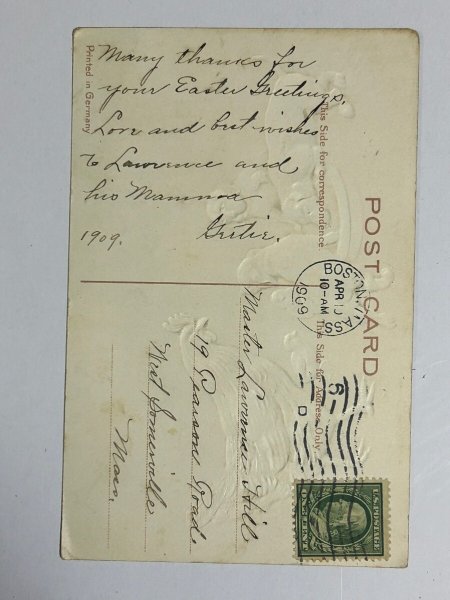 Many thanks for
your Easter Greetings.
Love and best wishes
to Lawrence and
his Mamma
1909. Gertie.
Printed in Germany
POST CARD
This Side for correspondence
This Side for Address Only
BOSTON, MASS
APR 10
10-AM
1909
6
D
Master Lawrence Hill
19 Pearson Road
West Somerville
Mass.
U.S. POSTAGE
ONE CENT